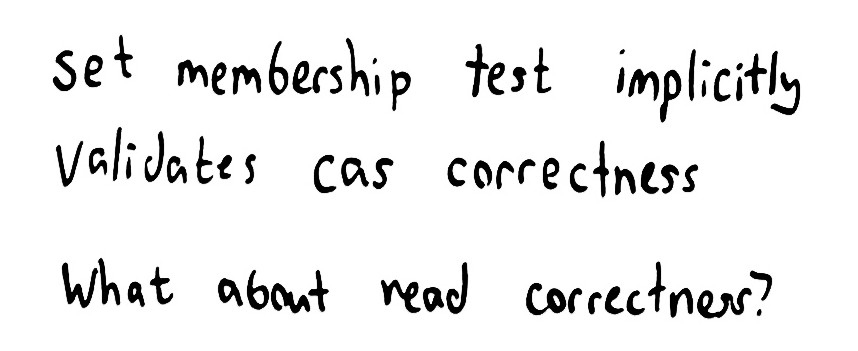 Set membership test implicitly
Validates cas correctness
What about read correctness?